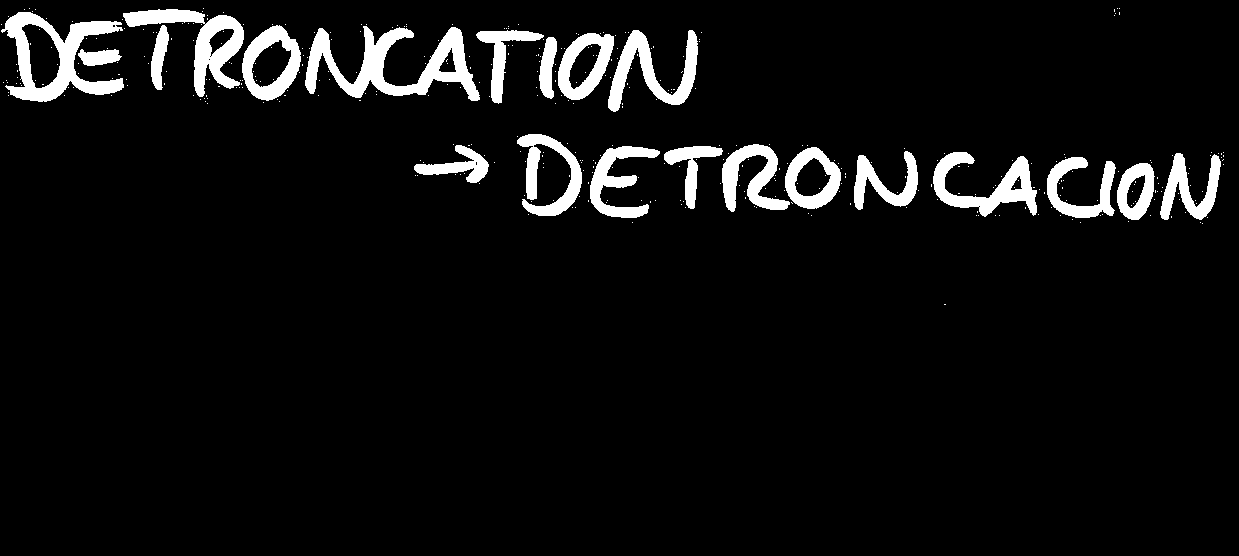 DETRONCATION
→ DETRONCACION